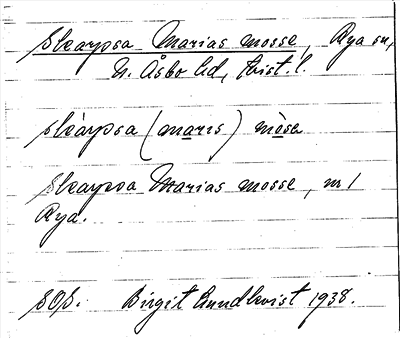 Skarpsa Marias mosse, Rya sn,
N. Åsbo hd, Krist. l.
skàrpsa (maris) mòsa
Skarpsa Marias mosse, nr 1
Rya.
SOS. Birgit Lundkvist 1938.